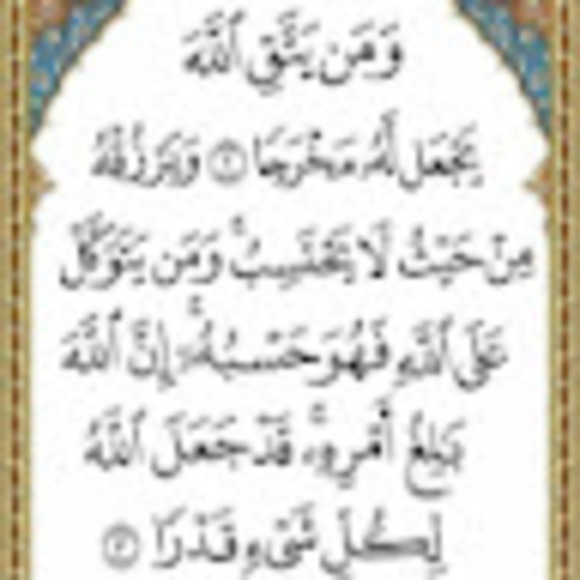 وَمَن يَتَّقِ ٱللَّهَ
يَجْعَل لَّهُۥ مَخْرَجًا ۝٢ وَيَرْزُقْهُ
مِنْ حَيْثُ لَا يَحْتَسِبُ ۚ وَمَن يَتَوَكَّلْ
عَلَى ٱللَّهِ فَهُوَ حَسْبُهُۥٓ ۚ إِنَّ ٱللَّهَ
بَٰلِغُ أَمْرِهِۦ ۚ قَدْ جَعَلَ ٱللَّهُ
لِكُلِّ شَىْءٍ قَدْرًا ۝٣